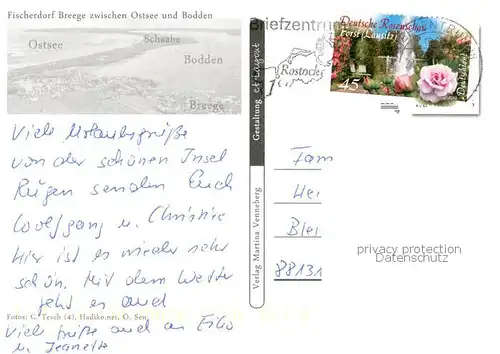 Fischerdorf Breege zwischen Ostsee und Bodden
Ostsee
Schaabe
Bodden
Breege
Viele Urlaubsgrüße
von der schönen Insel
Rügen senden Euch
Wolfgang u. Christine
Hier ist es wieder sehr
schön. Mit dem Wetter
geht es auch
Fotos: G. Tesch (4), Hadiko.net, O. Sen
Viele Grüße auch an
u. Jeanette
Verlag Martina Venneberg
Gestaltung et Layout
Briefzentrum
Rostocker
Deutsche Rosenschau
Forst (Lausitz)
45
Deutschland
Fam
Hei
Blei
88131
privacy protection
Datenschutz